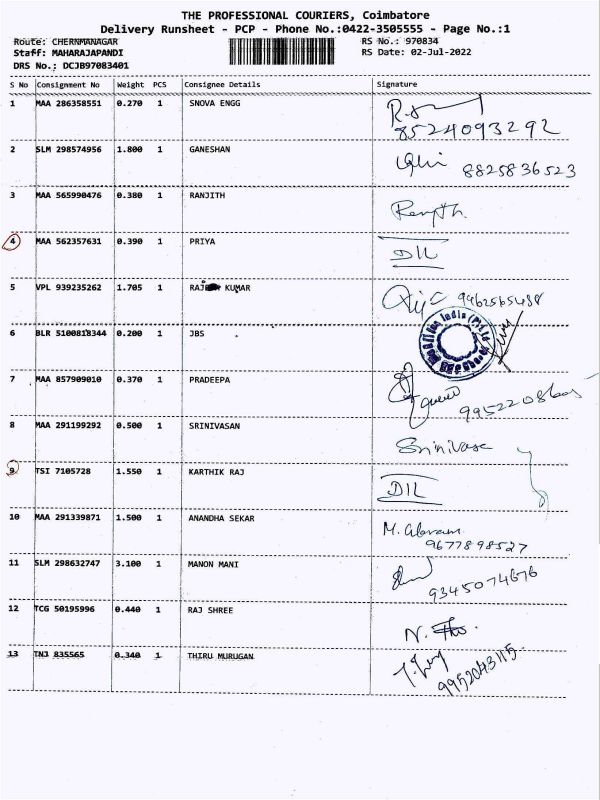 THE PROFESSIONAL COURIERS, Coimbatore
Delivery Runsheet - PCP - Phone No.:0422-3505555 - Page No.:1
Route: CHERNMANAGAR RS No.: 970834
Staff: MAHARAJAPANDI RS Date: 02-Jul-2022
DRS No.: DCJB97083401
S No Consignment No Weight PCS Consignee Details Signature
1 MAA 286358551 0.270 1 SNOVA ENGG
8524093292
2 SLM 298574956 1.800 1 GANESHAN
8825836523
3 MAA 565990476 0.380 1 RANJITH
4 MAA 562357631 0.390 1 PRIYA DIL
5 VPL 939235262 1.705 1 RAJ KUMAR
6 BLR 5100818344 0.200 1 JBS
7 MAA 857909010 0.370 1 PRADEEPA
8 MAA 291199292 0.500 1 SRINIVASAN Srinivasa
9 TSI 7105728 1.550 1 KARTHIK RAJ DIL
10 MAA 291339871 1.500 1 ANANDHA SEKAR
9677898527
11 SLM 298632747 3.100 1 MANON MANI
9345074676
12 TCG 50195996 0.440 1 RAJ SHREE
13 TNJ 835565 0.340 1 THIRU MURUGAN
9952043115